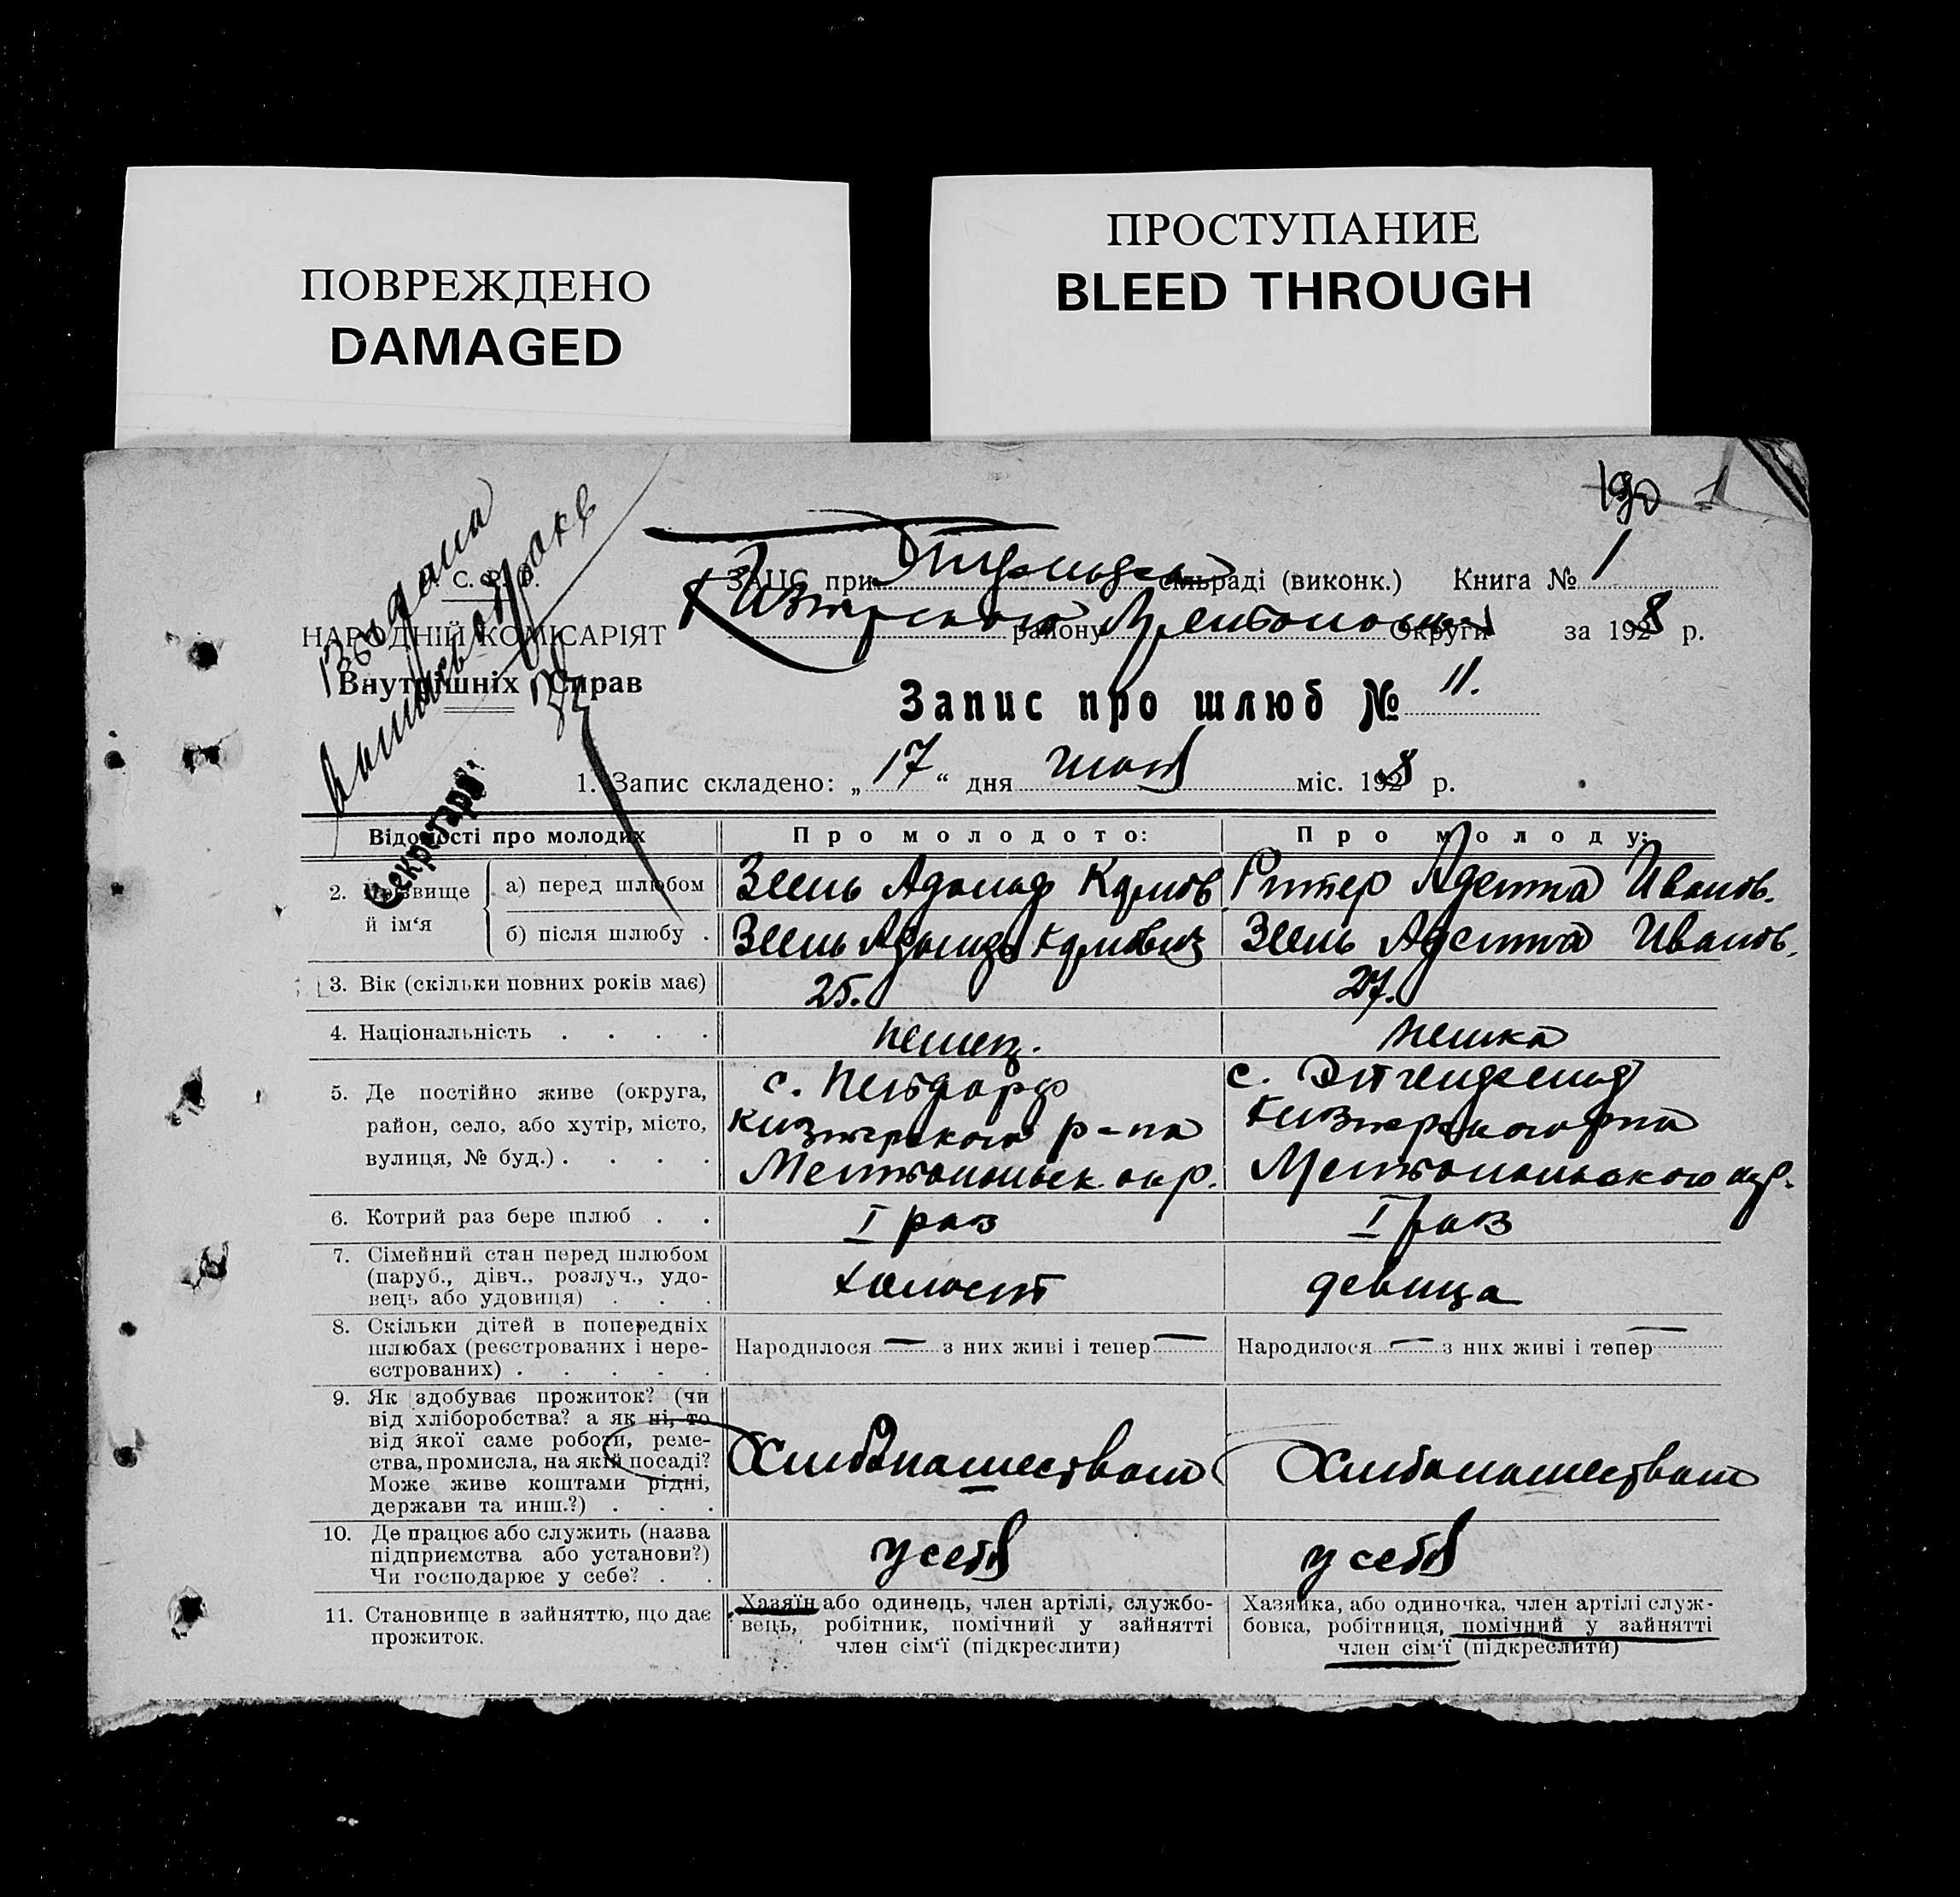 ПОВРЕЖДЕНО
DAMAGED
ПРОСТУПАНИЕ
BLEED THROUGH
190 1
С. Р. Р.
НАРОДНІЙ КОМІСАРІЯТ
Внутрішніх Справ
Выдана
выпись о браке
Секретарь:
ЗАЦС при сільраді (виконк.) Книга № 1
району Округи за 1928 р.
Запис про шлюб № 11.
1. Запис складено: „ 17 “ дня мая міс. 1928 р.
Відомості про молодих
Про молодого:
Про молоду:
2. Прізвище й ім‘я
а) перед шлюбом
Зеель Адольф Карлов
Ритер Адела Иванов.
б) після шлюбу .
Зеель Адольф Карлович
Зеель Адела Иванов.
3. Вік (скільки повних років має)
25.
27.
4. Національність . . . .
немец.
немка
5. Де постійно живе (округа,
район, село, або хутір, місто,
вулиця, № буд.) . . . .
с. Нейдорф
р-на
Мелитопольск. окр.
с.
р-на
Мелитопольского окр.
6. Котрий раз бере шлюб . .
I раз
I раз
7. Сімейний стан перед шлюбом
(паруб., дівч., розлуч., удо-
вець або удовиця) . . .
холост
девица
8. Скільки дітей в попередніх
шлюбах (реєстрованих і нере-
єстрованих) . . . . .
Народилося — з них живі і тепер —
Народилося — з них живі і тепер —
9. Як здобуває прожиток? (чи
від хліборобства? а як ні, то
від якої саме роботи, реме-
ства, промисла, на якій посаді?
Може живе коштами рідні,
держави та инш.?) . . .
Хлебопашеством
Хлебопашеством
10. Де працює або служить (назва
підприємства або установи?)
Чи господарює у себе? . .
у себя
у себя
11. Становище в зайняттю, що дає
прожиток.
Хазяїн або одинець, член артілі, службо-
вець, робітник, помічний у зайнятті
член сім‘ї (підкреслити)
Хазяйка, або одиночка, член артілі служ-
бовка, робітниця, помічний у зайнятті
член сім‘ї (підкреслити)